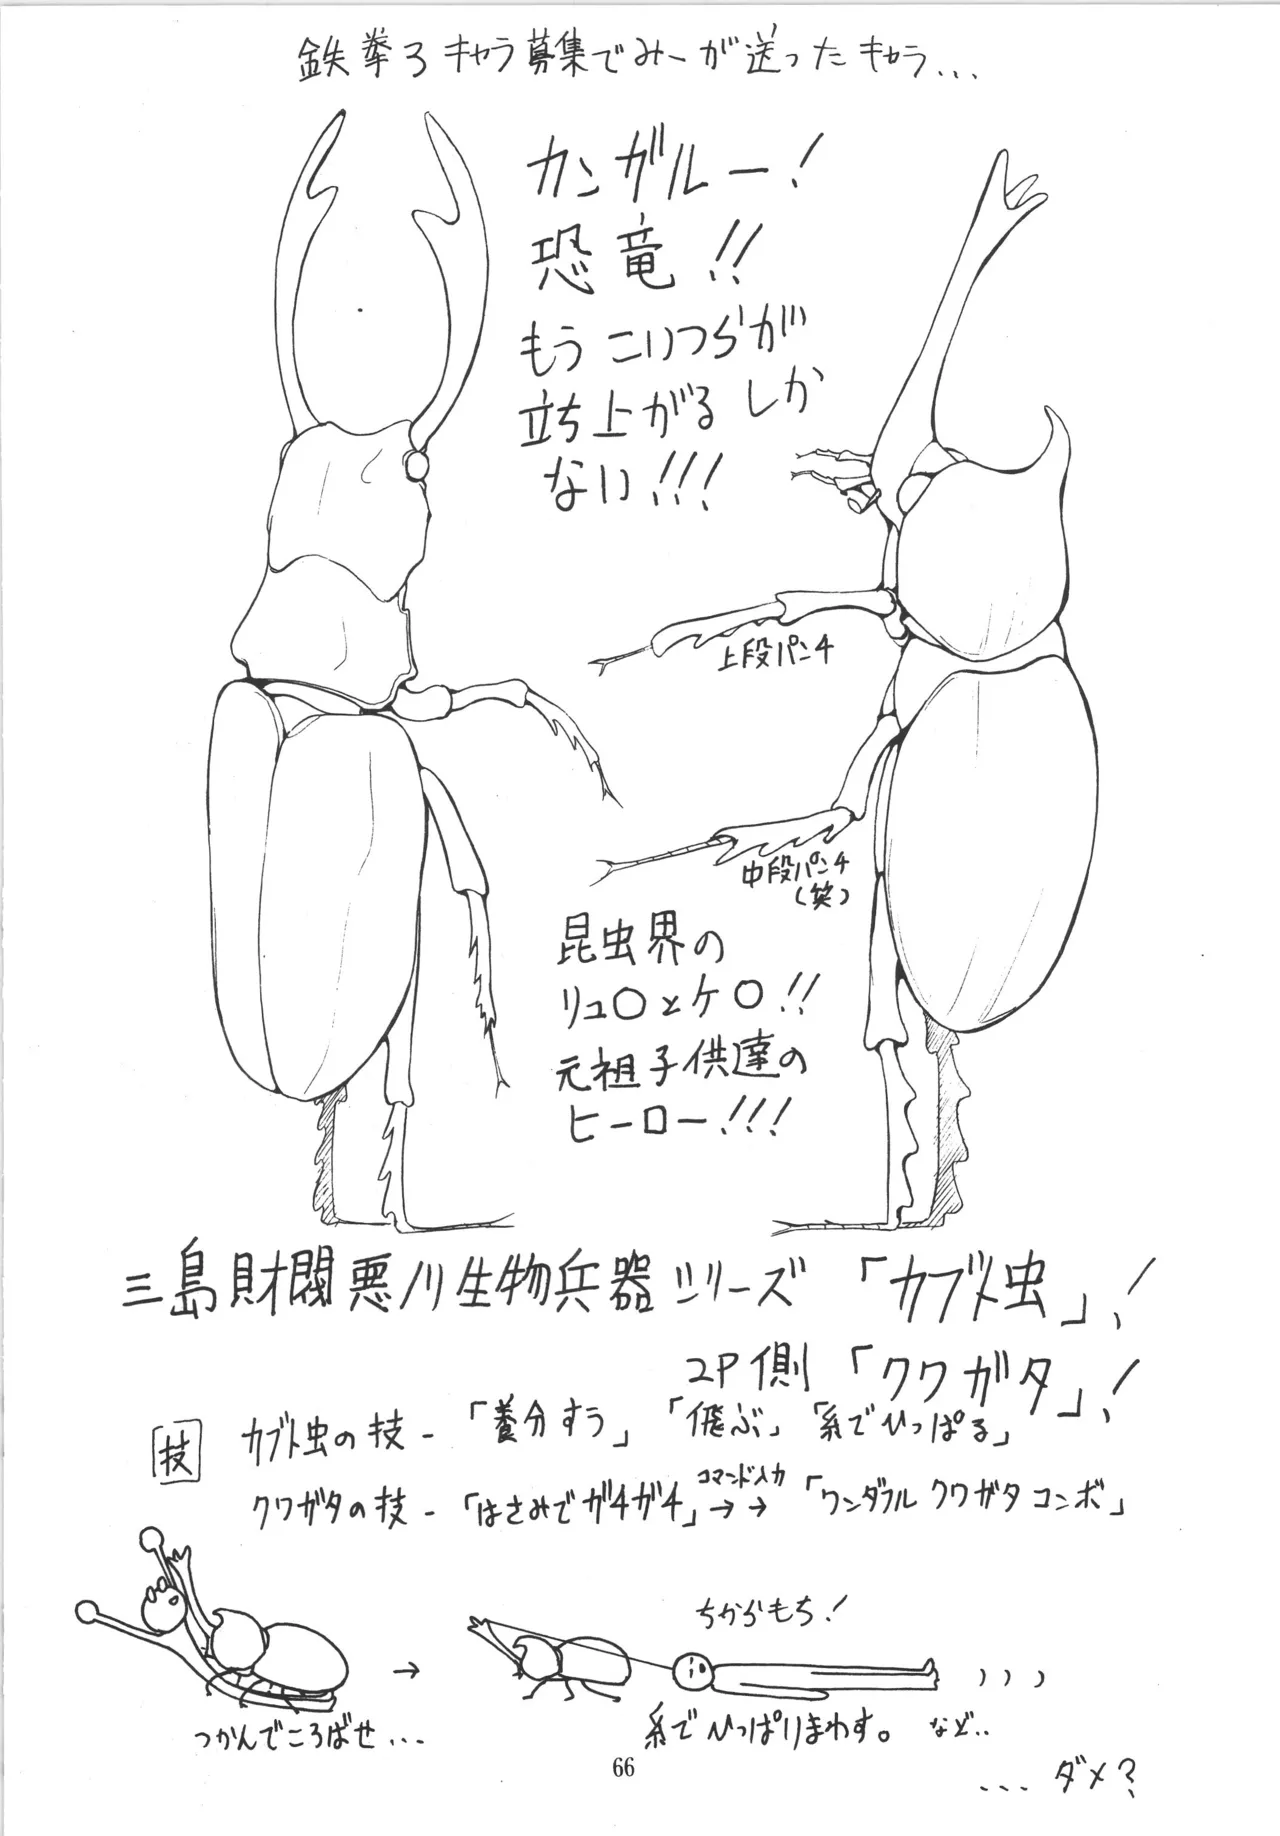 鉄拳3キャラ募集でみーが送ったキャラ...
カンガルー!
恐竜!!
もうこいつらが
立ち上がるしか
ない!!!
上段パンチ
中段パンチ
(笑)
昆虫界の
リュ〇とケ〇!!
元祖子供達の
ヒーロー!!!
三島財閥悪ノリ生物兵器シリーズ「カブト虫」!
2P側「クワガタ」!
技
カブト虫の技-「養分すう」「飛ぶ」「糸でひっぱる」
クワガタの技-「はさみでガチガチ」→→「ワンダフルクワガタコンボ」
コマンド入力
→
ちからもち!
つかんでころばせ...
糸でひっぱりまわす。など..
66
...ダメ?